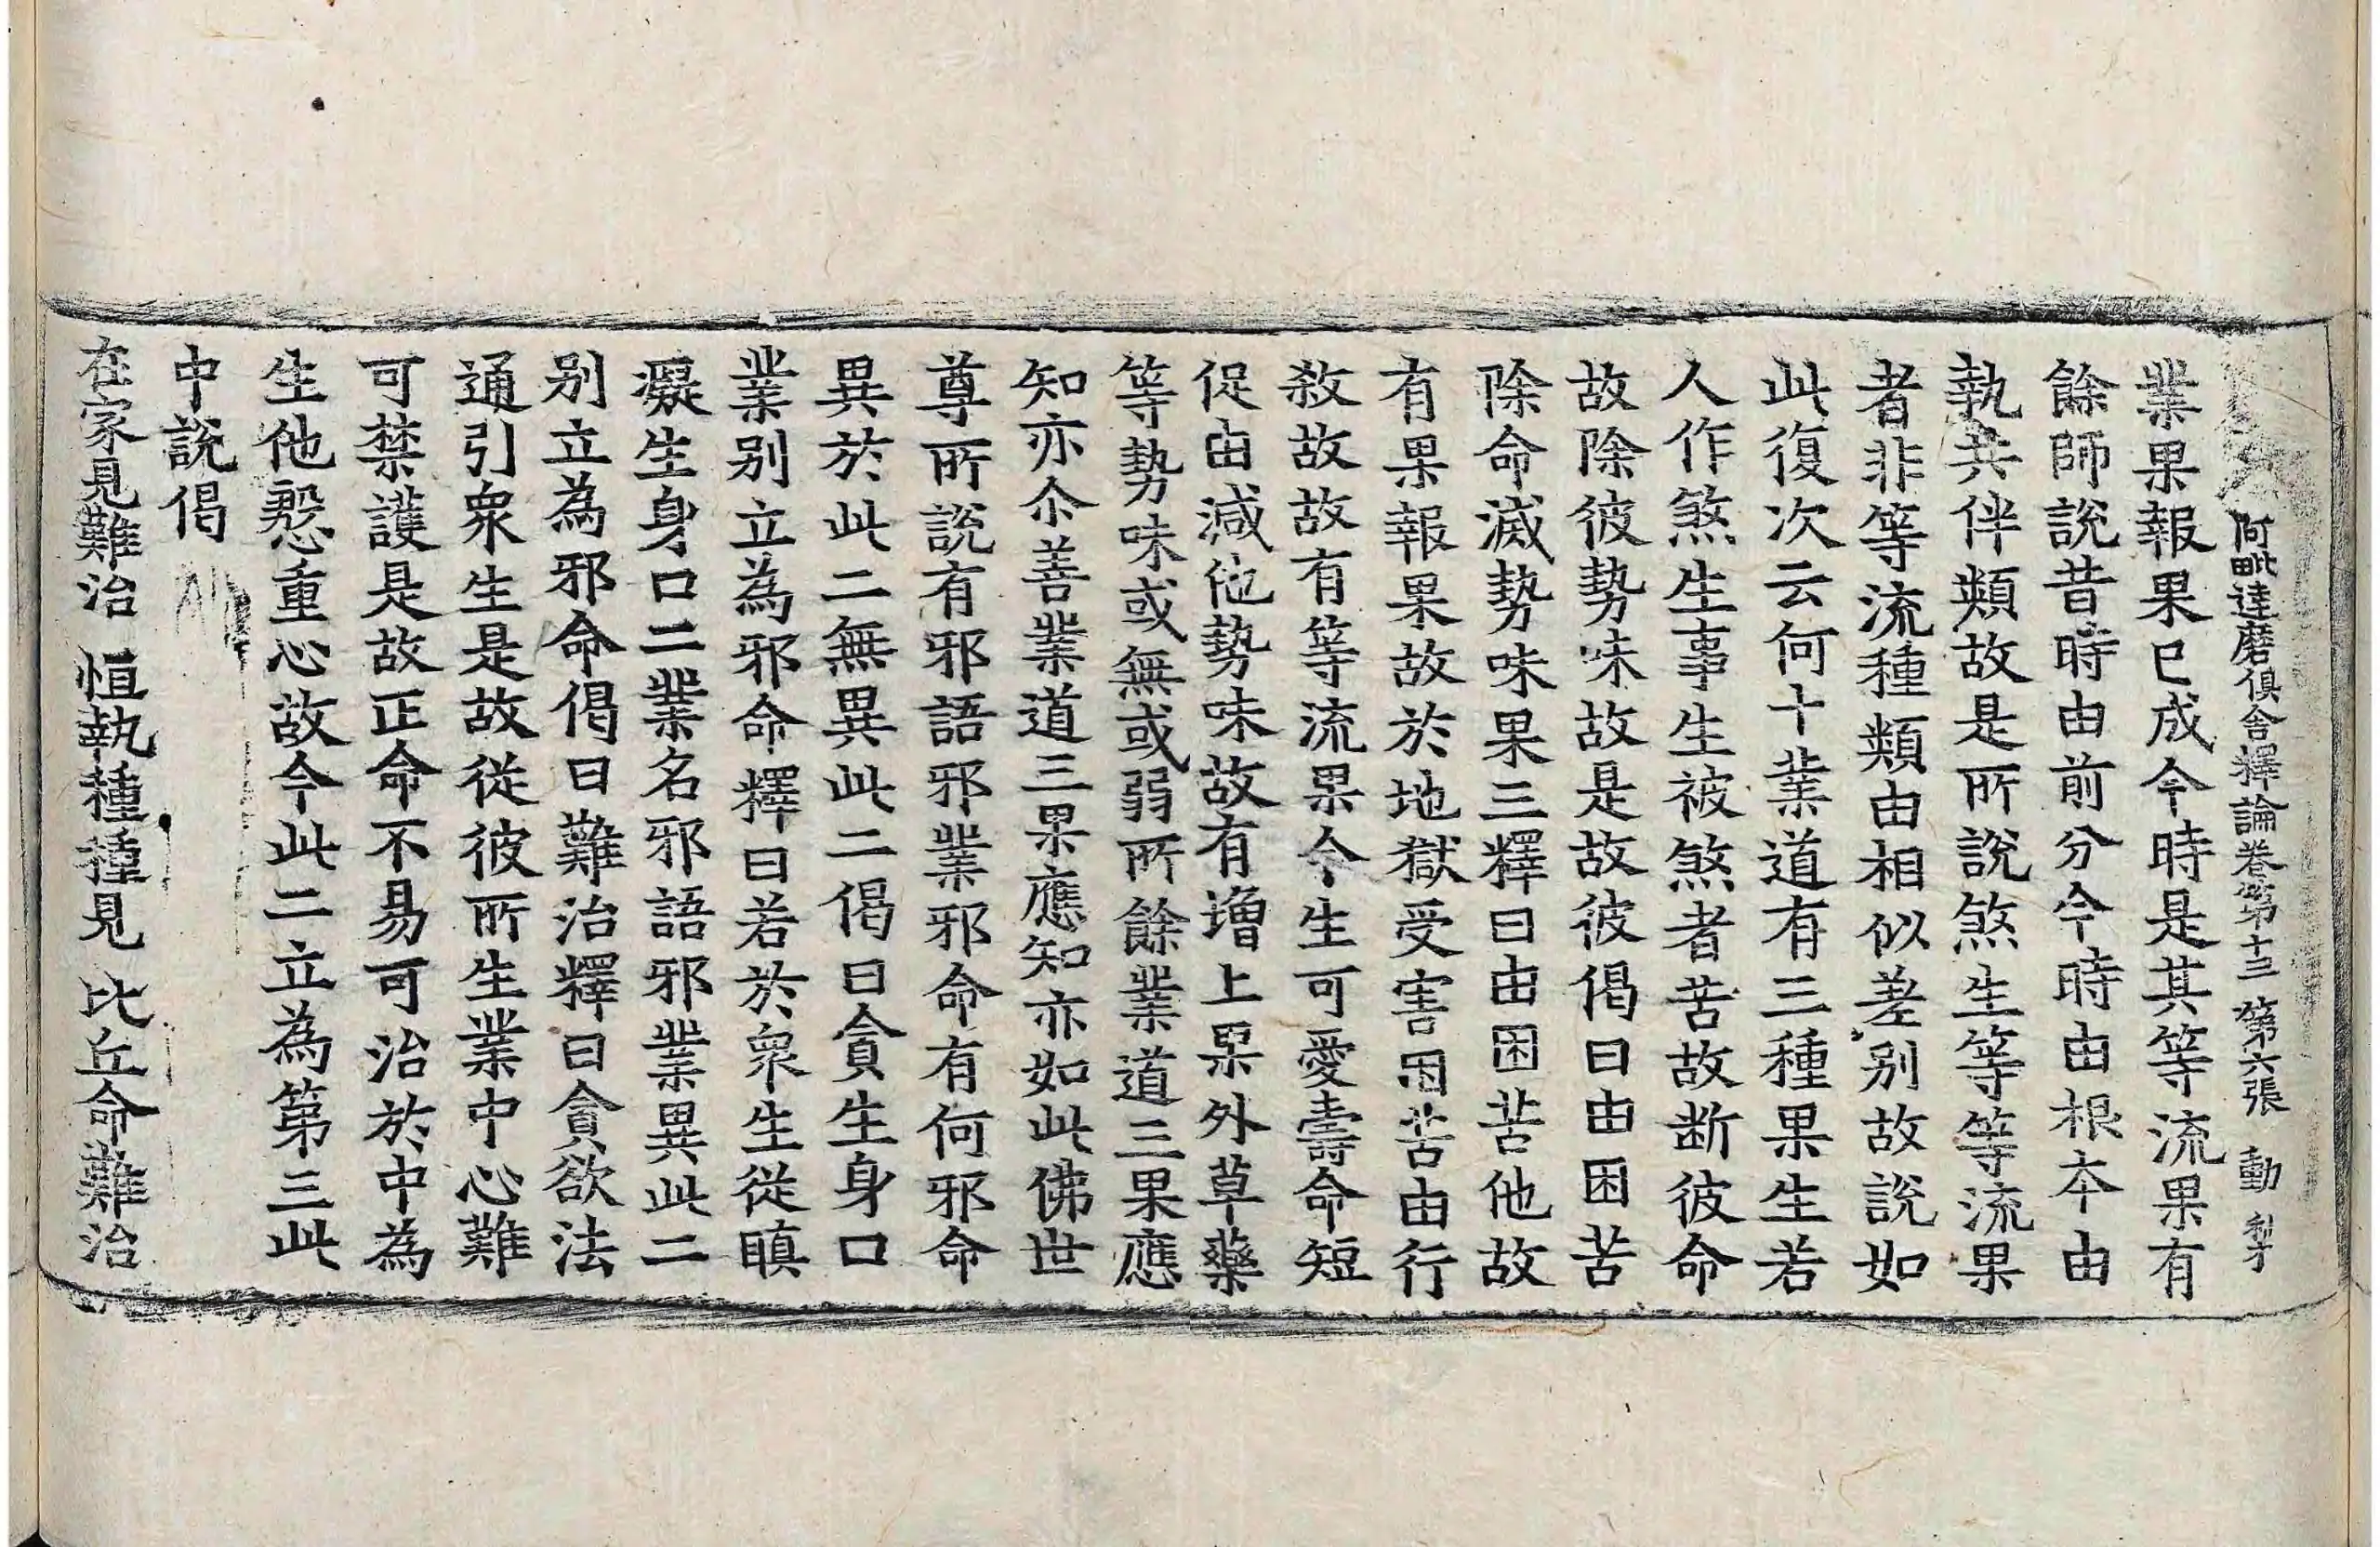 阿毗達磨俱舍釋論卷第十三 第六張 動
業果報果已成今時是其等流果有
餘師說昔時由前分今時由根本由
執共伴類故是所說煞生等等流果
者非等流種類由相似差別故說如
此復次云何十業道有三種果生若
人作煞生事生被煞者苦故断彼命
故除彼勢味故是故彼偈曰由困苦
除命滅勢味果三釋曰由困苦他故
有果報果故於地獄受害困苦由行
敎故故有等流果今生可愛壽命短
促由減他勢味故有增上果外草藥
等勢味或無或弱所餘業道三果應
知亦尒善業道三果應知亦如此佛世
尊所說有邪語邪業邪命有何邪命
異於此二無異此二偈曰貪生身口
業別立為邪命釋曰若於衆生從瞋
癡生身口二業名邪語邪業異此二
別立為邪命偈曰難治釋曰貪欲法
通引衆生是故從彼所生業中心難
可禁護是故正命不易可治於中為
生他慇重心故今此二立為第三此
中說偈
在家見難治 恒執種種見 比丘命難治